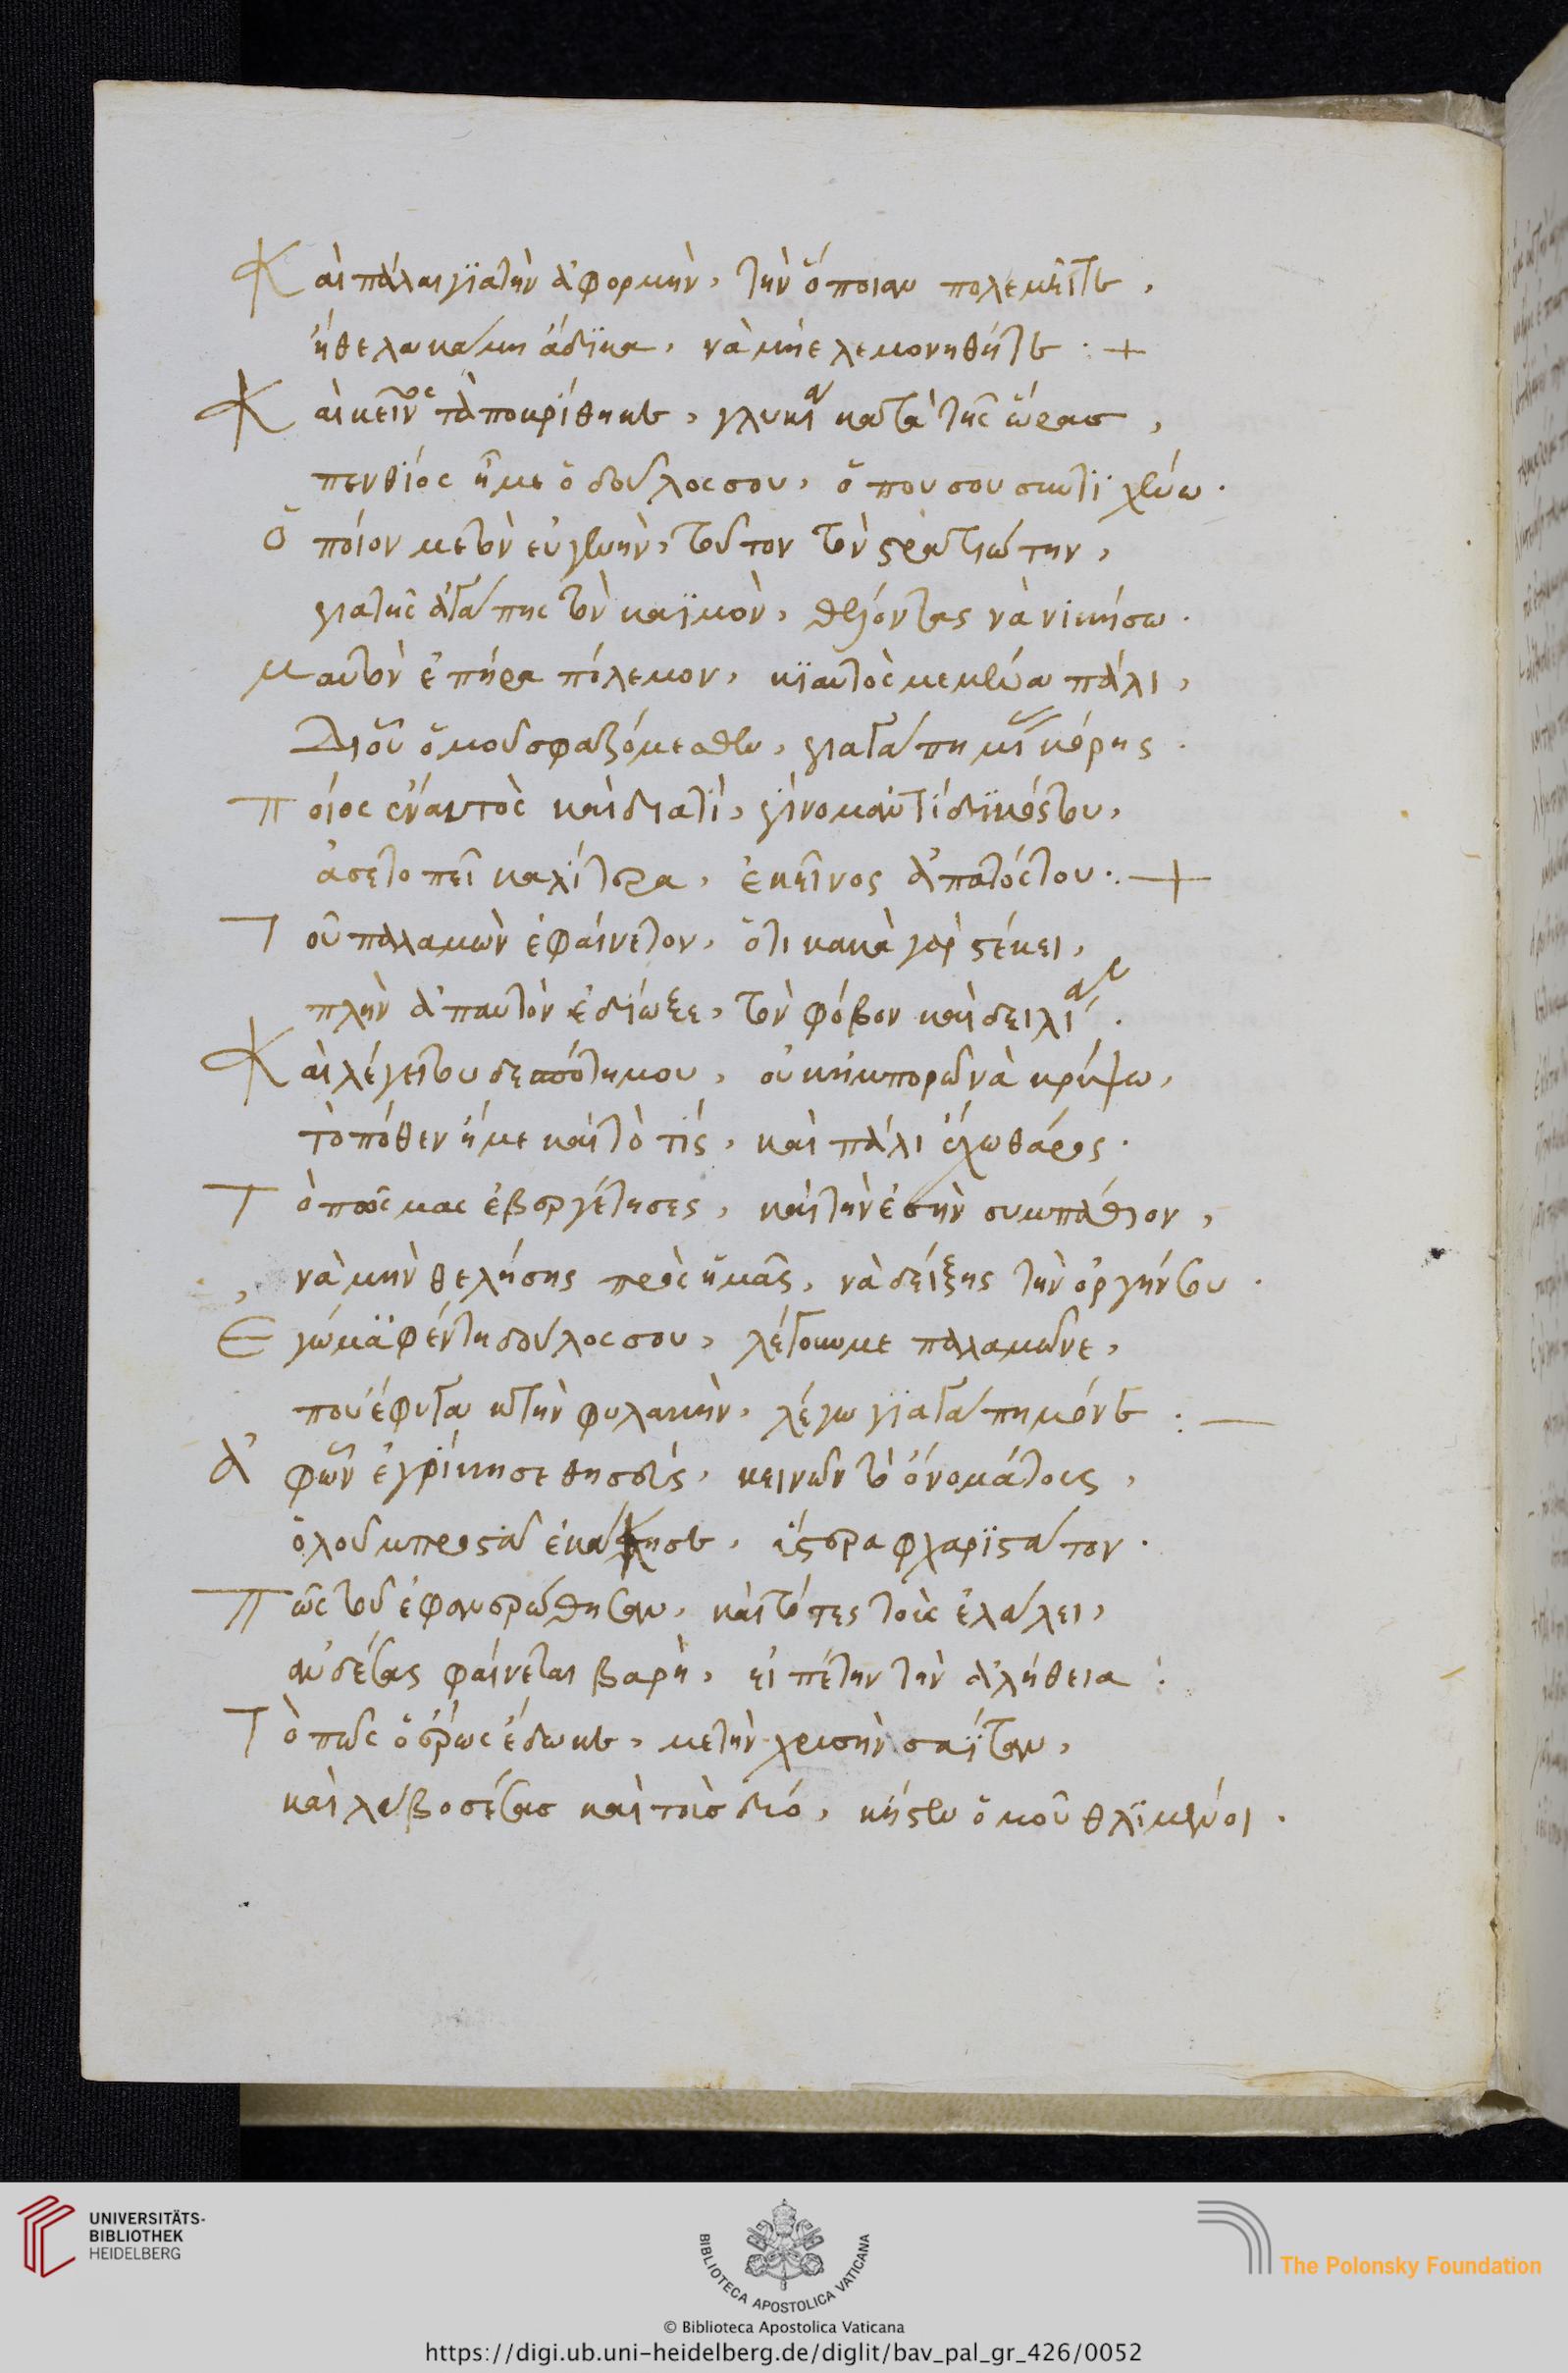 Καὶ πάλαι γϊατὴν ἀφορμὴν, τὴν ὅποιαν πολεμῆτε,
ἤθελα κάμη ἄδϊκα, νὰ μὴ ελεμονηθῆτε :+
Καὶ κεῖνος τἀποκρίθηκε, γλυκιὰ κατὰ τῆς ὥρασ,
πενθϊὸς ἤμε ὁ δοῦλος σου, ὅπου σου συντϊχένω.
Ὁποῖον με τὸν εὐγενὴν, τοῦτον τὸν στρατιώτην,
για τῆς ἀγάπης τὸν καϊμὸν, θέλοντας νὰ νικήσω.
Μ αυτὸν ἐπῆρα πόλεμον, κϊ αυτὸς με μένα πάλι,
Διοῦ ὁμοῦ σφαζόμεσθεν, γι αγάπη μιᾶς κόρης.
Ποῖος ἔναι αυτὸς καὶ διατὶ, γίνομαι ἀντίδϊκός του,
ἀσετοπεῖ καλίτερα, ἐκεῖνος ἀπατός του.+
Τοῦ παλαμὼν ἐφαίνετον, ὅτι κακὰ γὰρ στέκει,
πλὴν ἀπαυτὸν ἐδϊωξε, τὸν φόβον καὶ δειλίαν.
Καὶ λέγει του δεσπότη μου, οὐκ ἠμπορῶ νὰ κρύψω,
τὸ πόθεν ἤμε καὶ τὸ τίς, καὶ πάλι ἔχω θάρος.
Τὸ πῶς μας ἐβεργέτησες, καὶ τὴν ἐσὴν συμπάθιον,
νὰ μὴν θελήσης πρὸς ἡμᾶς, νὰ δείξης τὴν ὀργήν σου.
Ἐγώμαϊ φέντη δοῦλος σου, λέγουν με παλαμῶνε,
που ἔφυγα κ τὴν φυλακὴν, λέγω γϊ αγάπη μόνε :—
Ἀφῶν ἐγρίκησε θησεὺς, κεινῶν τὸ ὄνομάτους,
ὁλοῦ μπροστὰ ἐκάθησε, ϊστερα φχαριστά τον.
Πῶς τοῦ ἐφανερώθησαν, καὶ τό πες τοὺς ἐλάλει,
ἂν δέσας φαίνεται βαρὴ, εἰπέτην τὴν ἀλήθεια :
Τὸ πῶς ὁ ἔρως ἔδωκε, με τὴν χρισὴν σαΐταν,
καὶ λάβοσέσας καὶ τοὺς διὸ, κήστεν ὁμοῦ θλϊμένοι.
UNIVERSITÄTS-
BIBLIOTHEK
HEIDELBERG
BIBLIOTECA APOSTOLICA VATICANA
The Polonsky Foundation
© Biblioteca Apostolica Vaticana
https://digi.ub.uni-heidelberg.de/diglit/bav_pal_gr_426/0052